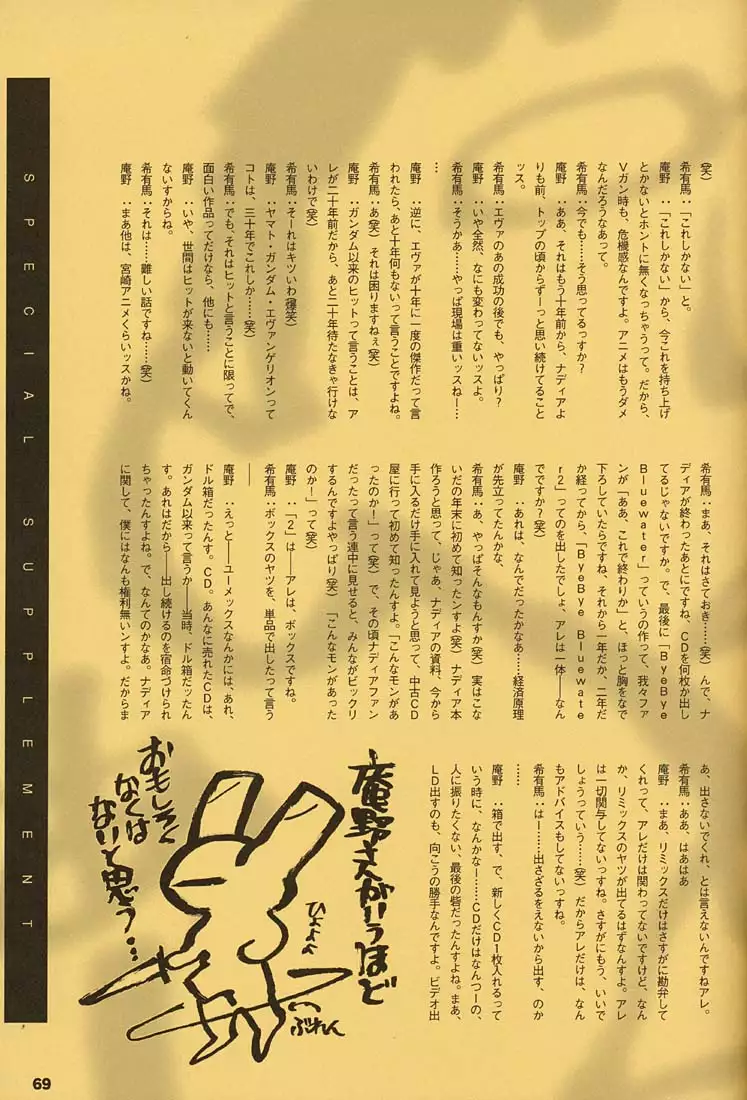 (笑)
希有馬：「これしかない」と。
庵野　：「これしかない」から、今これを持ち上げ
とかないとホントに無くなっちゃうって。だから、
Vガン時も、危機感なんですよ。アニメはもうダメ
なんだろうなあって。
希有馬：今でも……そう思ってるっすか？
庵野　：ああ、それはもう十年前から、ナディアよ
りも前、トップの頃からずーっと思い続けてること
ッス。
希有馬：エヴァのあの成功の後でも、やっぱり？
庵野　：いや全然、なにも変わってないッスよ。
希有馬：そうかあ……やっぱ現場は重いッスねー…
…
庵野　：逆に、エヴァが十年に一度の傑作だって言
われたら、あと十年何もないって言うことですよね。
希有馬：あ(笑)　それは困りますねぇ(笑)
庵野　：ガンダム以来のヒットって言うことは、ア
レが二十年前だから、あと二十年待たなきゃ行けな
いわけで(笑)
希有馬：そーれはキツいわ(爆笑)
庵野　：ヤマト・ガンダム・エヴァンゲリオンって
コトは、三十年でこれしか……(笑)
希有馬：でも、それはヒットと言うことに限ってで、
面白い作品ってだけなら、他にも……
庵野　：いや、世間はヒットが来ないと動いてくん
ないすからね。
希有馬：それは……難しい話ですね……(笑)
庵野　：まあ他は、宮崎アニメくらいッスかね。
希有馬：まあ、それはさておき……(笑)　んで、ナ
ディアが終わったあとにですね、CDを何枚か出し
てるじゃないですか。で、最後に「ByeBye
Bluewater」っていうの作って、我々ファ
ンが「ああ、これで終わりか」と、ほっと胸をなで
下ろしていたらですね、それから一年だか、二年だ
か経ってから、「ByeBye　Bluewate
r2」ってのを出したでしょ、アレは一体――なん
でですか？(笑)
庵野　：あれは、なんでだったかなあ……経済原理
が先立ってたんかな。
希有馬：あ、やっぱそんなもんすか(笑)　実はこな
いだの年末に初めて知ったンすよ(笑)　ナディア本
作ろうと思って、じゃあ、ナディアの資料、今から
手に入るだけ手に入れて見ようと思って、中古CD
屋に行って初めて知ったんすよ。「こんなモンがあ
ったのか！」って(笑)　で、その頃ナディアファン
だったって言う連中に見せると、みんながビックリ
するんですよやっぱり(笑)　「こんなモンがあった
のか！」って(笑)
庵野　：「2」は――アレは、ボックスですね。
希有馬：ボックスのヤツを、単品で出したって言う
――
庵野　：えっと――ユーメックスなんかには、あれ、
ドル箱だったんす。CD。あんなに売れたCDは、
ガンダム以来って言うか――当時、ドル箱だったん
す。あれはだから――出し続けるのを宿命づけられ
ちゃったんすよね。で、なんてのかなあ。ナディア
に関して、僕にはなんも権利無いンすよ。だからま
あ、出さないでくれ、とは言えないんですねアレ。
希有馬：ああ、はあはあ
庵野　：まあ、リミックスだけはさすがに勘弁して
くれって、アレだけは関わってないですけど、なん
か、リミックスのヤツが出てるはずなんすよ。アレ
は一切関与してないっすね。さすがにもう、いいで
しょうっていう……(笑)　だからアレだけは、なん
もアドバイスもしてないっすね。
希有馬：はー……出さざるをえないから出す、のか
……
庵野　：箱で出す、で、新しくCD1枚入れるって
いう時に、なんかなー……CDだけはなんつーの、
人に振りたくない、最後の砦だったんすよね。まあ、
LD出すのも、向こうの勝手なんですよ。ビデオ出
庵野さんがいうほど
おもしろく
なくは
ないと思う…
ひょよよ
ぷれん
SPECIAL SUPPLEMENT
69